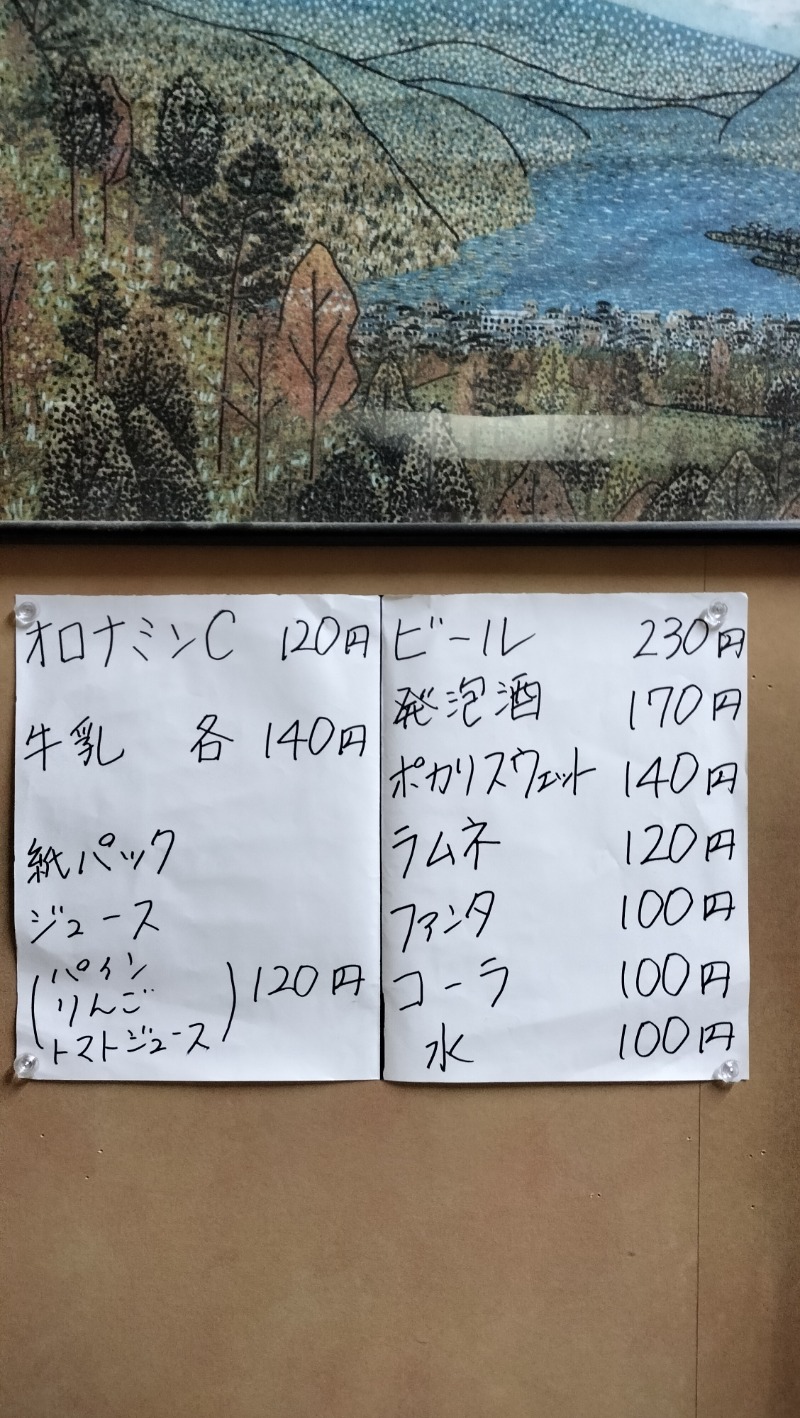 オロナミンC 120円
牛乳 各 140円
紙パック
ジュース
(パイン
りんご
トマトジュース) 120円
ビール 230円
発泡酒 170円
ポカリスウェット 140円
ラムネ 120円
ファンタ 100円
コーラ 100円
水 100円